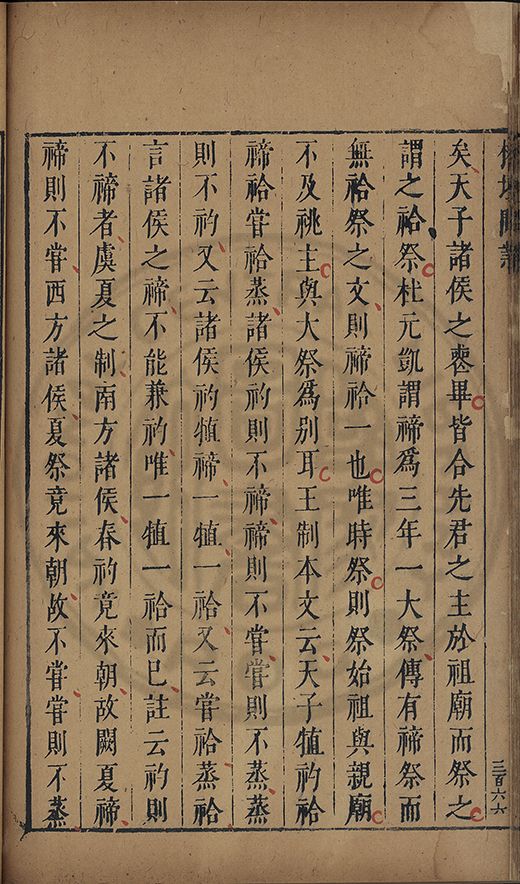 矣天子諸侯之喪畢皆合先君之主於祖廟而祭之
謂之祫祭杜元凱謂禘爲三年一大祭傳有禘祭而
無祫祭之文則禘祫一也唯時祭則祭始祖與親廟
不及祧主與大祭爲别耳王制本文云天子犆礿祫
禘祫嘗祫蒸諸侯礿則不禘禘則不嘗嘗則不蒸蒸
則不礿又云諸侯礿犆禘一犆一祫又云嘗祫蒸祫
言諸侯之禘不能兼礿唯一犆一祫而已註云礿則
不禘者虞夏之制南方諸侯春礿竟來朝故闕夏禘
禘則不嘗西方諸侯夏祭竟來朝故不嘗嘗則不蒸
三百六六